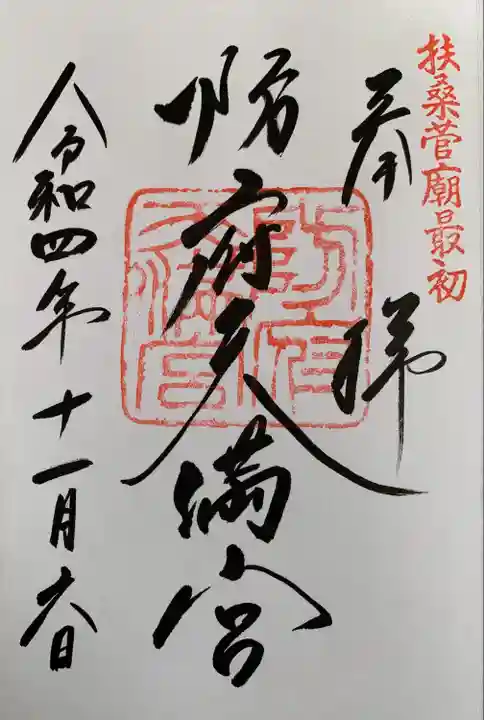 扶桑菅廟最初
奉拝
防府天満宮
令和四年十一月六日